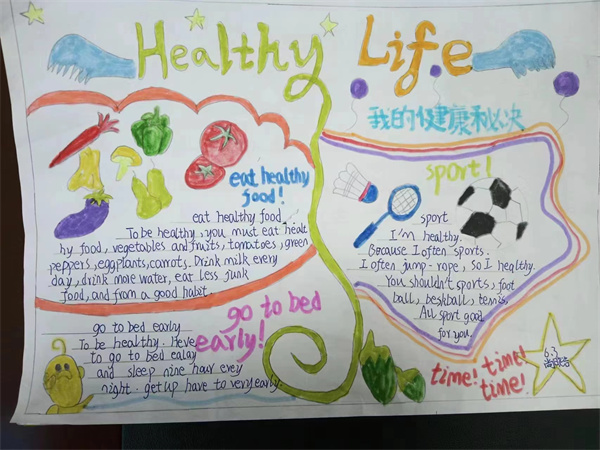 Healthy Life
我的健康秘决
eat healthy
food!
eat healthy food
To be healthy, you must eat healt
hy food, vegetables and fruits, tomatoes, green
peppers, eggplants, carrots. Drink milk every
day, drink more water, eat less junk
food, and from a good habit.
sport!
sport
I'm healthy.
Because I often sports.
I often jump-rope, so I healthy.
You shouldn't sports, foot
ball, beskball, tennis,
All sport good
for you.
go to bed
early!
go to bed early
To be healthy. Heve
to go to bed ealay
and sleep nine hour evey
night. get up have to very early.
time! time!
time!
6.3